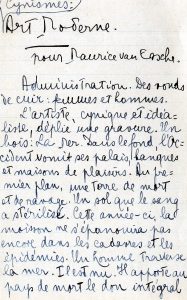 Cynismes:
Art Moderne.
pour Maurice van Essche.
Administration. Des ronds
de cuir: femmes et hommes.
L'artiste, cynique et idéa-
liste, déplie une gravure. Un
bois: La Mer. Dans le fond, l'Oc-
cident vomit ses palais, banques
et maisons de plaisirs. Au pre-
mier plan, une terre de mort
et de ravage. Un sol que le sang
a stérilisé. Cette année-ci, la
moisson ne s'épanouira pas
encore dans les cadavres et les
épidémies. Un homme traverse
la mer. Il est nu. Il apporte au
pays de mort le don intégral